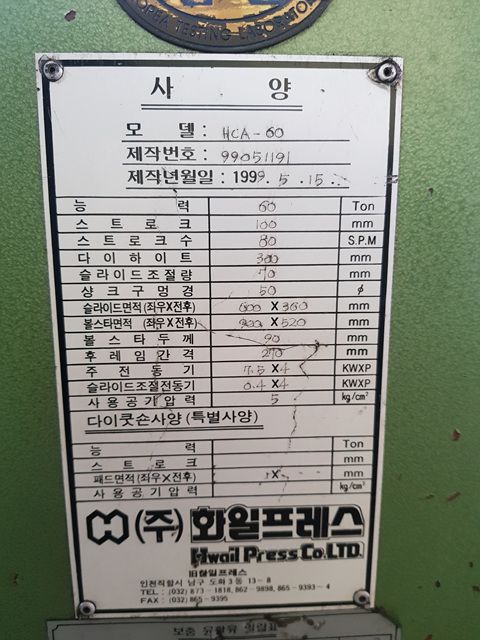 KOREA TESTING LABORATORY
사 양
모 델 : HCA-60
제작번호 : 99051191
제작년월일 : 1999. 5. 15.
능 력 60 Ton
스 트 로 크 100 mm
스 트 로 크 수 80 S.P.M
다 이 하 이 트 300 mm
슬라이드조절량 70 mm
샹 크 구 멍 경 50 ϕ
슬라이드면적 (좌우X전후) 600 X 360 mm
볼스타면적 (좌우X전후) 900 X 520 mm
볼 스 타 두 께 90 mm
후 레 임 간 격 270 mm
주 전 동 기 7.5 X 4 KWXP
슬라이드조절전동기 0.4 X 4 KWXP
사 용 공 기 압 력 5 kg/cm²
다이쿳숀사양 (특별사양)
능 력 Ton
스 트 로 크 mm
패드면적 (좌우X전후) X mm
사 용 공 기 압 력 kg/cm²
(주) 화일프레스
Hwail Press Co. LTD.
旧한일프레스
인천직할시 남구 도화 3 동 13 - 8
TEL : (032) 873 - 1818, 862 - 9898, 865 - 9393 - 4
FAX : (032) 865 - 9395
보충 윤활유 일람표